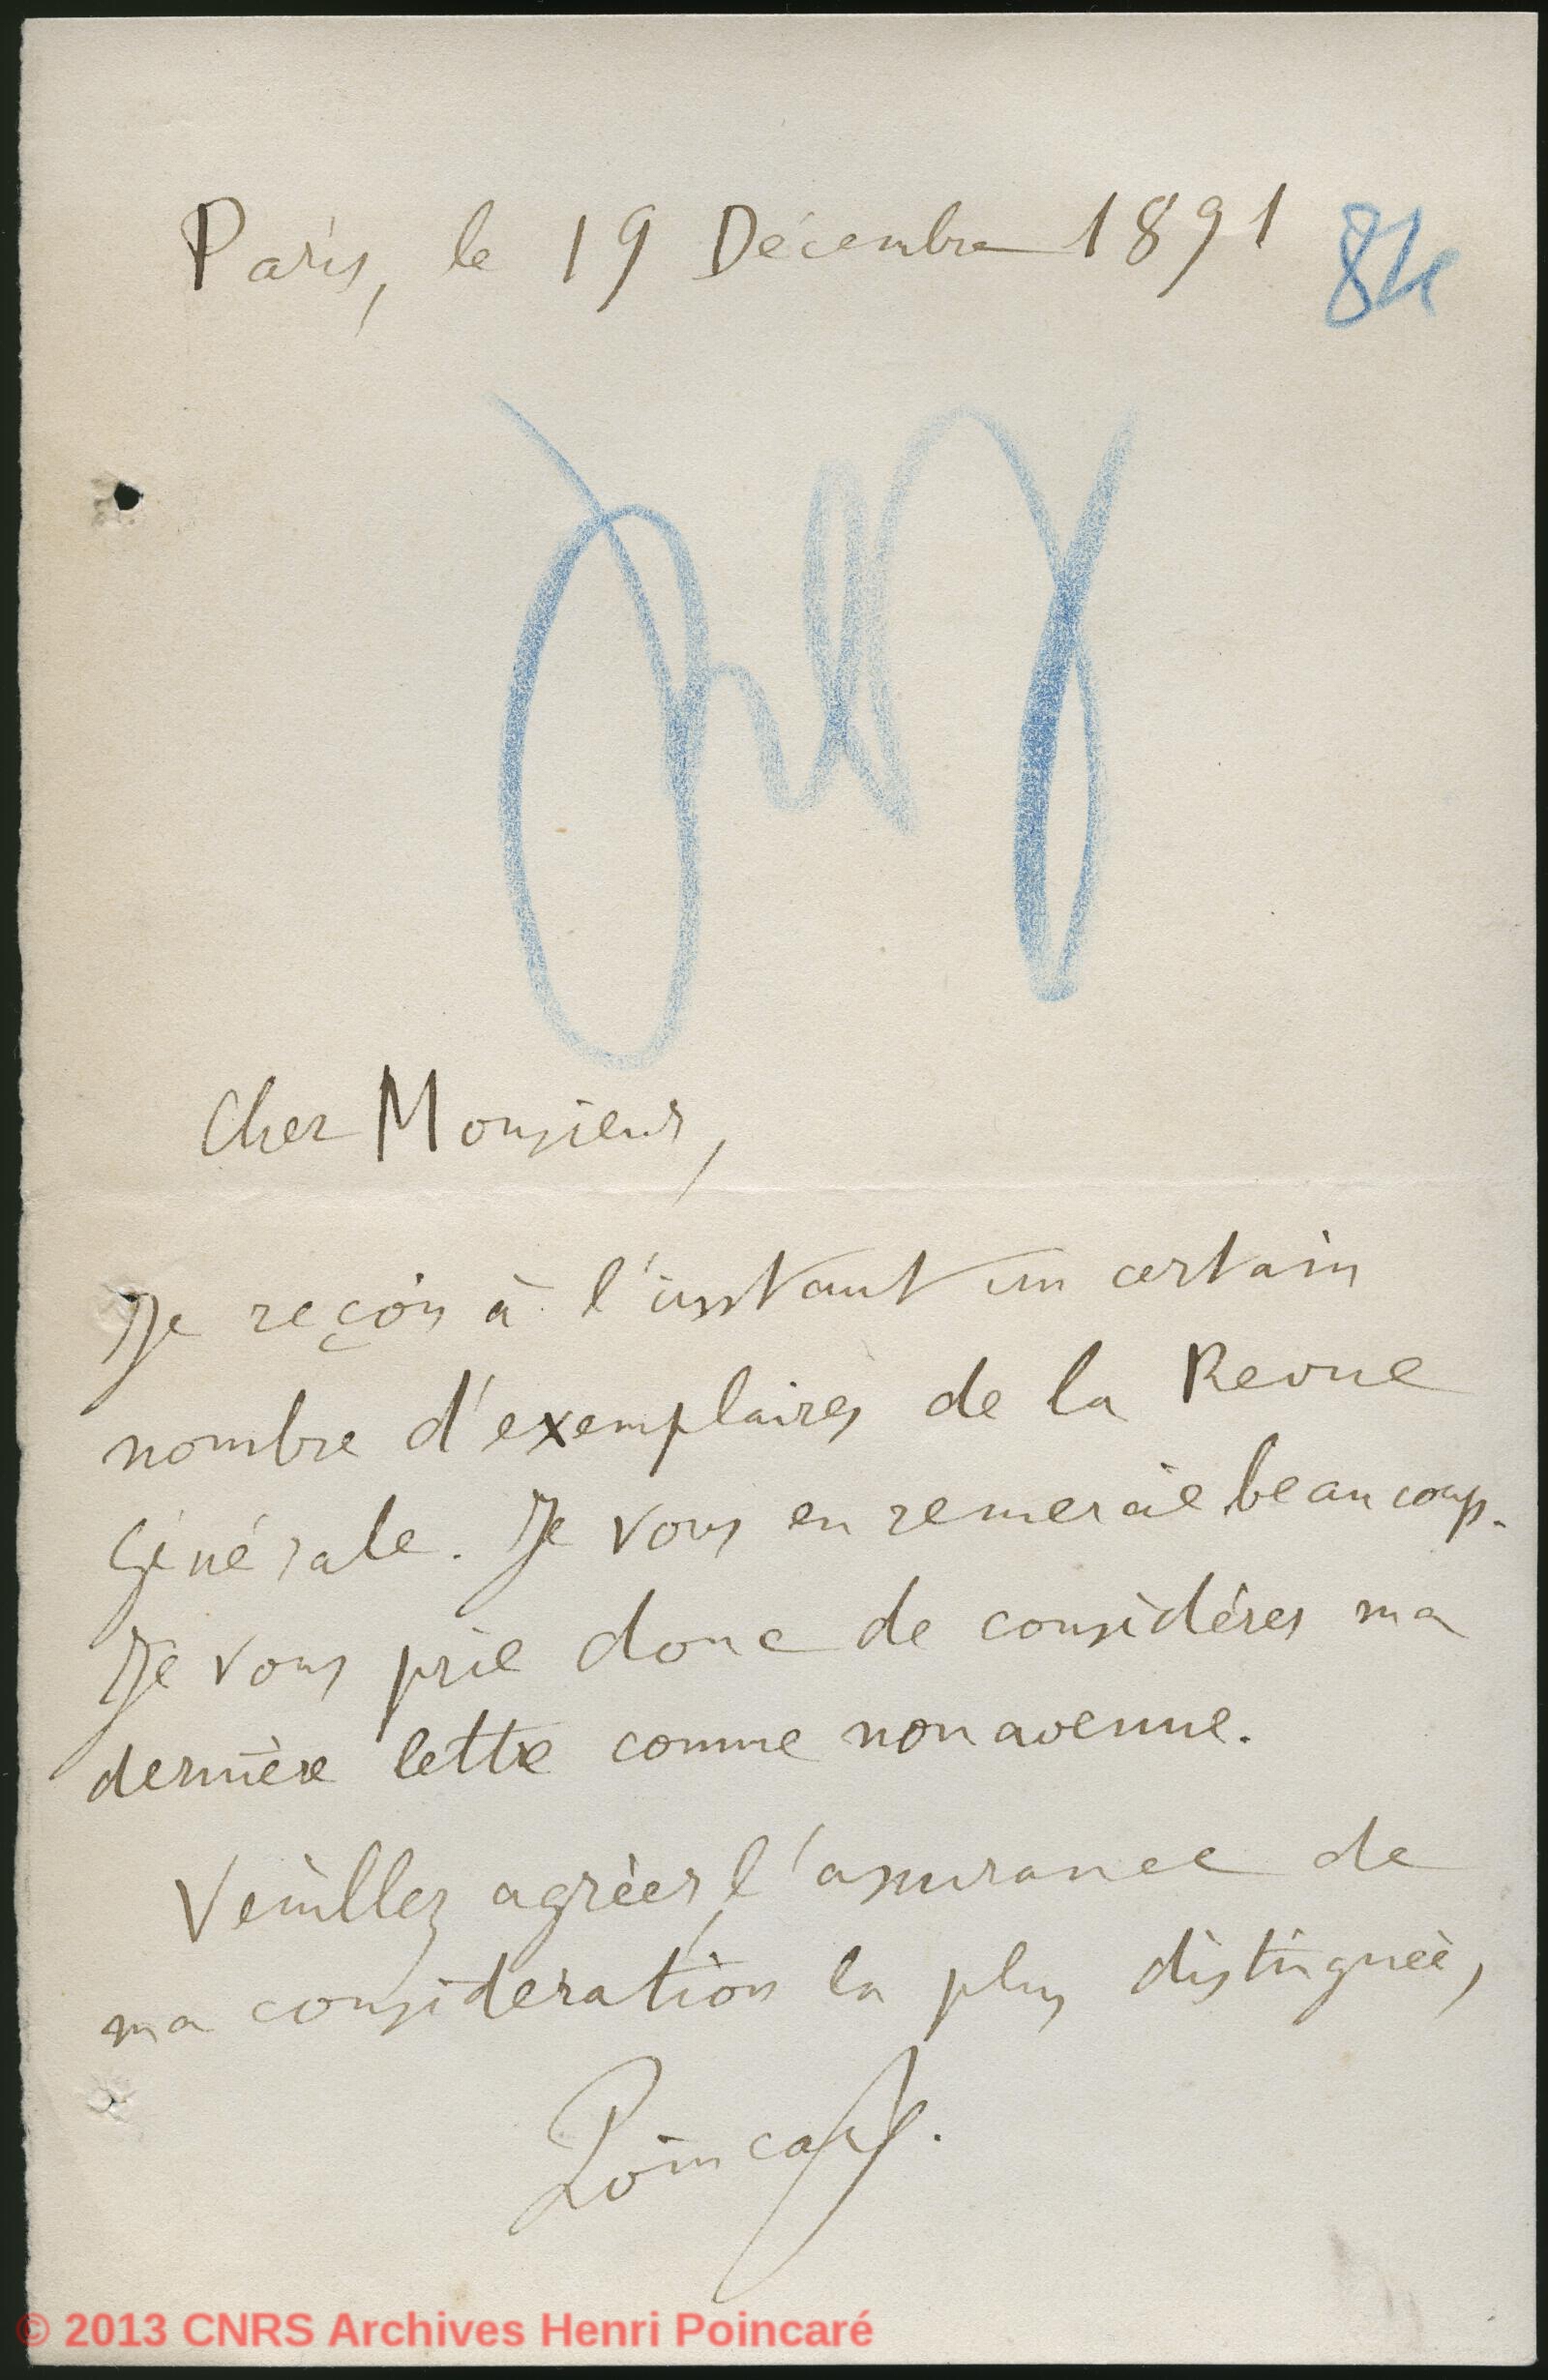 Paris, le 19 Décembre 1891
Cher Monsieur,
Je reçois à l'instant un certain
nombre d'exemplaires de la Revue
Générale. Je vous en remercie beaucoup.
Je vous prie donc de considérer ma
dernière lettre comme non avenue.
Veuillez agréer, l'assurance de
ma considération la plus distinguée,
Poincaré.
© 2013 CNRS Archives Henri Poincaré